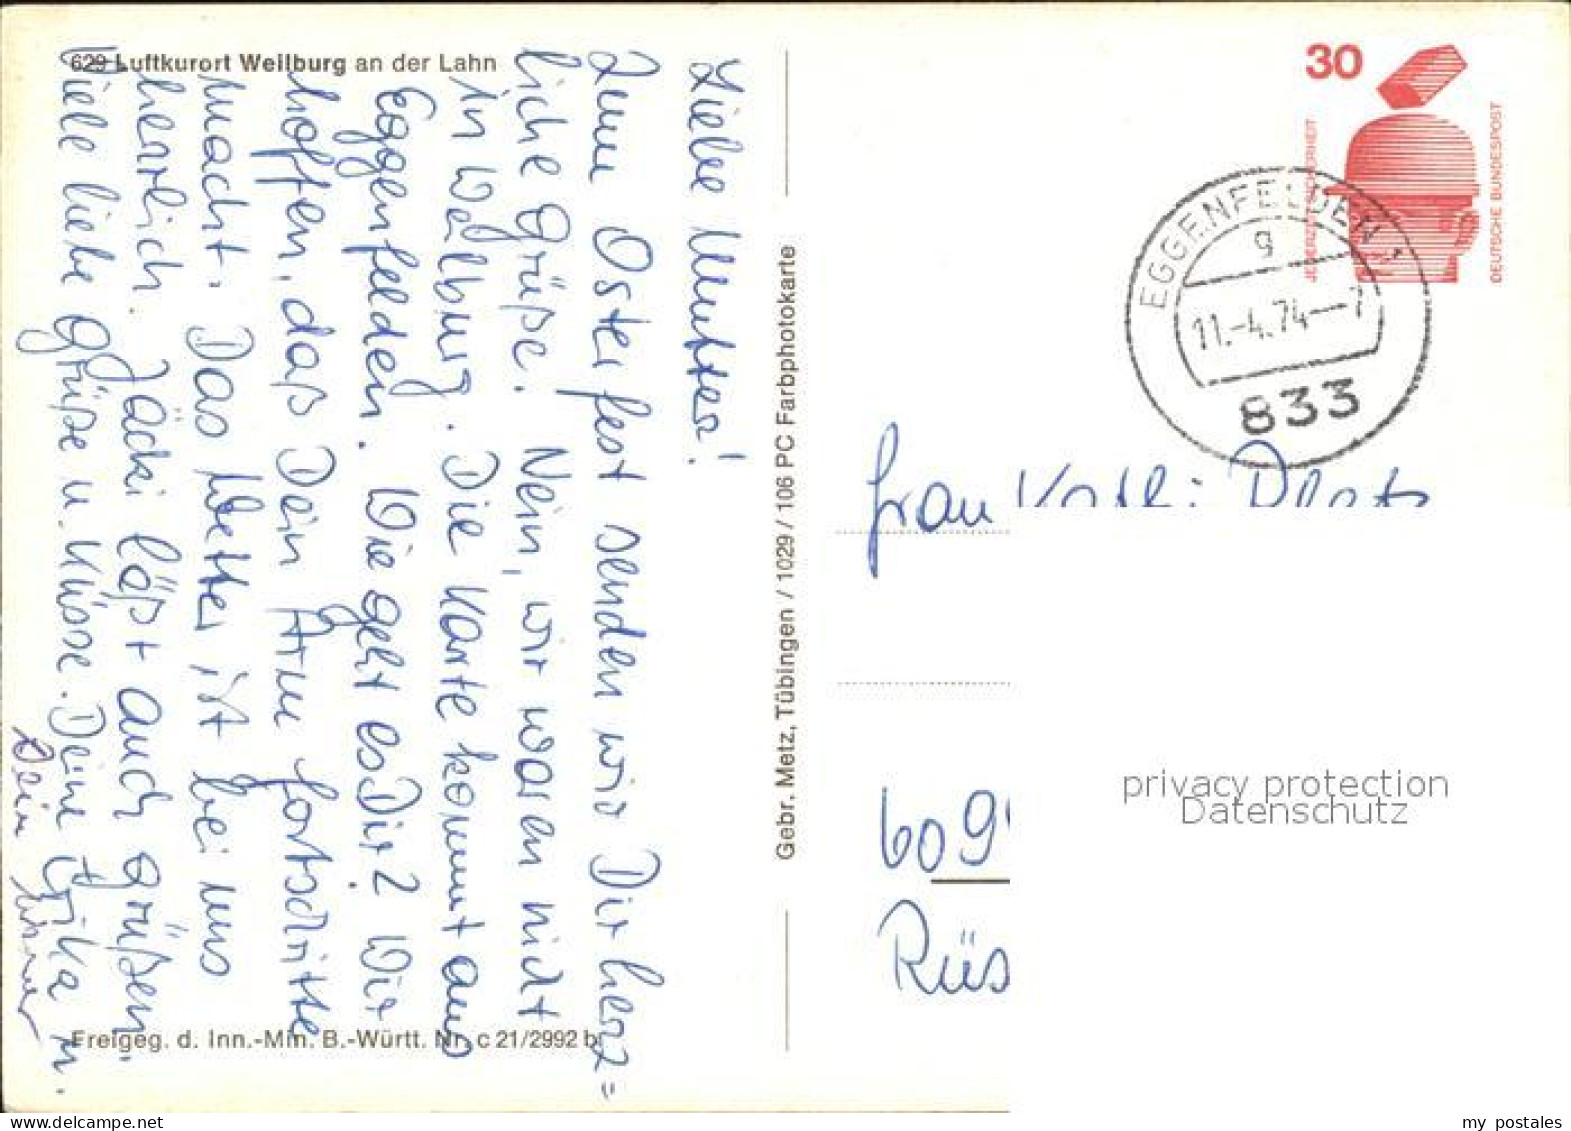 629 Luftkurort Weilburg an der Lahn
Liebe Mutter!
Zum Osterfest senden wir Dir herz=
liche Grüße. Nein, wir waren nicht
in Weilburg. Die Karte kommt aus
Eggenfelden. Wie geht es Dir? Wir
hoffen, daß Dein Arm fortschritte
macht. Das Wetter ist bei uns
herrlich. Jacki läßt auch grüßen.
Viele liebe Grüße u. Küsse. Deine Erika u.
Dein
Freigeg. d. Inn.-Min. B.-Württ. Nr. c 21/2992 b
Gebr. Metz, Tübingen / 1029 / 106 PC Farbphotokarte
30
JEDERZEIT SICHERHEIT
DEUTSCHE BUNDESPOST
EGGENFELDEN 1
g
11.-4.74--7
833
Frau
609
Rüs
privacy protection
Datenschutz
my_postales